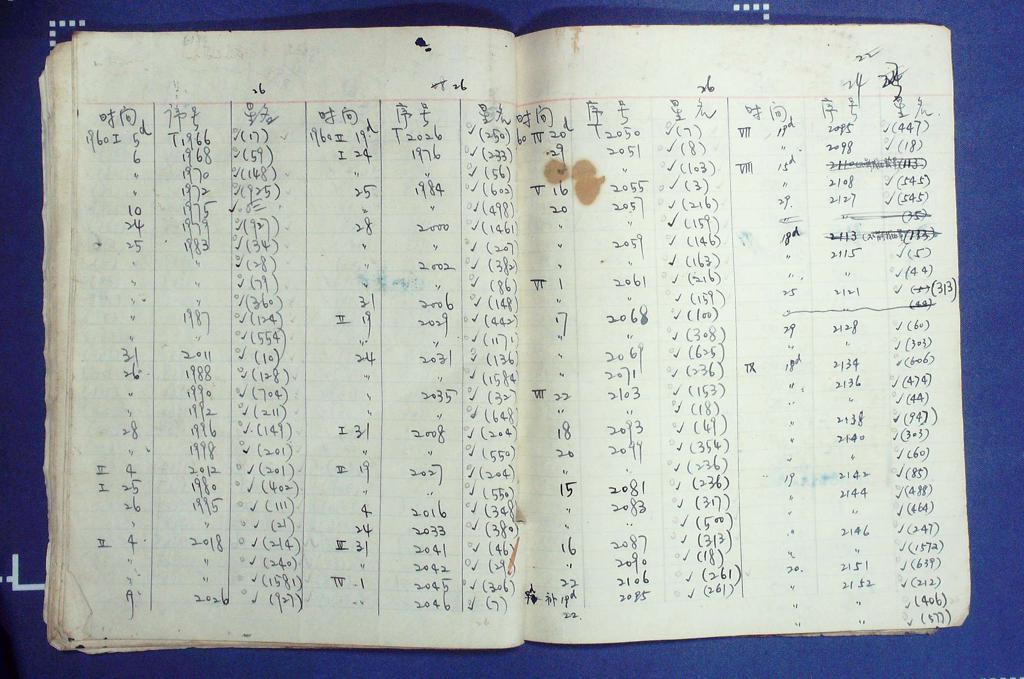 26
26
时间 序号 星名 时间 序号 星名
1960 I 5d T1966 ✓(17) 1960 II 19d T2026 ✓(250)
6 1968 ✓(59) I 24 1976 ✓(233)
〃 1970 ✓(148) 〃 〃 ✓(56)
〃 1972 ✓(925) 25 1984 ✓(602)
10 1975 〃 〃 ✓(498)
24 1979 ✓(927) 28 2000 ✓(1461)
25 1983 ✓(34) 〃 〃 ✓(207)
〃 〃 ✓(28) 〃 2002 ✓(382)
〃 〃 ✓(79) 〃 〃 ✓(86)
〃 〃 ✓(360) 31 2006 ✓(148)
〃 1987 ✓(124) II 19 2029 ✓(442)
〃 〃 ✓(554) 〃 〃 ✓(117)
31 2011 ✓(10) 24 2031 ✓(136)
26 1988 ✓(128) 〃 〃 ✓(1584)
〃 1990 ✓(704) 〃 2035 ✓(32)
〃 1992 ✓(211) 〃 〃 ✓(648)
28 1996 ✓(149) I 31 2008 ✓(204)
〃 1998 ✓(201) 〃 〃 ✓(550)
II 4 2012 ✓(201) II 19 2027 ✓(204)
I 25 1980 ✓(402) 〃 〃 ✓(550)
26 1995 ✓(111) 4 2016 ✓(348)
〃 〃 ✓(21) 24 2033 ✓(380)
II 4 2018 ✓(214) III 31 2041 ✓(46)
〃 〃 ✓(240) 〃 2042 ✓(29)
〃 〃 ✓(1581) IV 1 2045 ✓(306)
9 2026 ✓(927) 〃 2046 ✓(7)
26
22
24
时间 序号 星名 时间 序号 星名
60 IV 20d T2050 ✓(7) VII 19d 2095 ✓(447)
29 2051 ✓(8) 〃 2098 ✓(18)
✓(103) VIII 15d
V 16 2055 ✓(3) 〃 2108 ✓(545)
20 2057 ✓(216) 29 2127 ✓(545)
〃 〃 ✓(159) 〃 〃 (35)
〃 2059 ✓(146) 18d 2113
〃 〃 ✓(163) 〃 2115 ✓(5)
VI 1 2061 ✓(216) 〃 〃 ✓(44)
〃 〃 ✓(159) 25 2121 ✓(313)
17 2068 ✓(100) 〃 (44)
〃 〃 ✓(308) 29 2128 ✓(60)
〃 2069 ✓(625) 〃 〃 ✓(303)
〃 2071 ✓(236) IX 18d 2134 ✓(606)
VII 22 2103 ✓(153) 〃 2136 ✓(474)
〃 〃 ✓(18) 〃 〃 ✓(44)
18 2093 ✓(49) 〃 2138 ✓(947)
20 2099 ✓(354) 〃 2140 ✓(303)
〃 〃 ✓(236) 〃 〃 ✓(60)
15 2081 ✓(236) 19 2142 ✓(85)
〃 2083 ✓(317) 〃 2144 ✓(488)
〃 〃 ✓(500) 〃 〃 ✓(464)
16 2087 ✓(313) 〃 2146 ✓(247)
〃 2090 ✓(18) 〃 〃 ✓(1572)
22 2106 ✓(261) 20 2151 ✓(639)
补19d 2095 ✓(261) 〃 2152 ✓(212)
22 〃 〃 ✓(406)
〃 〃 ✓(577)